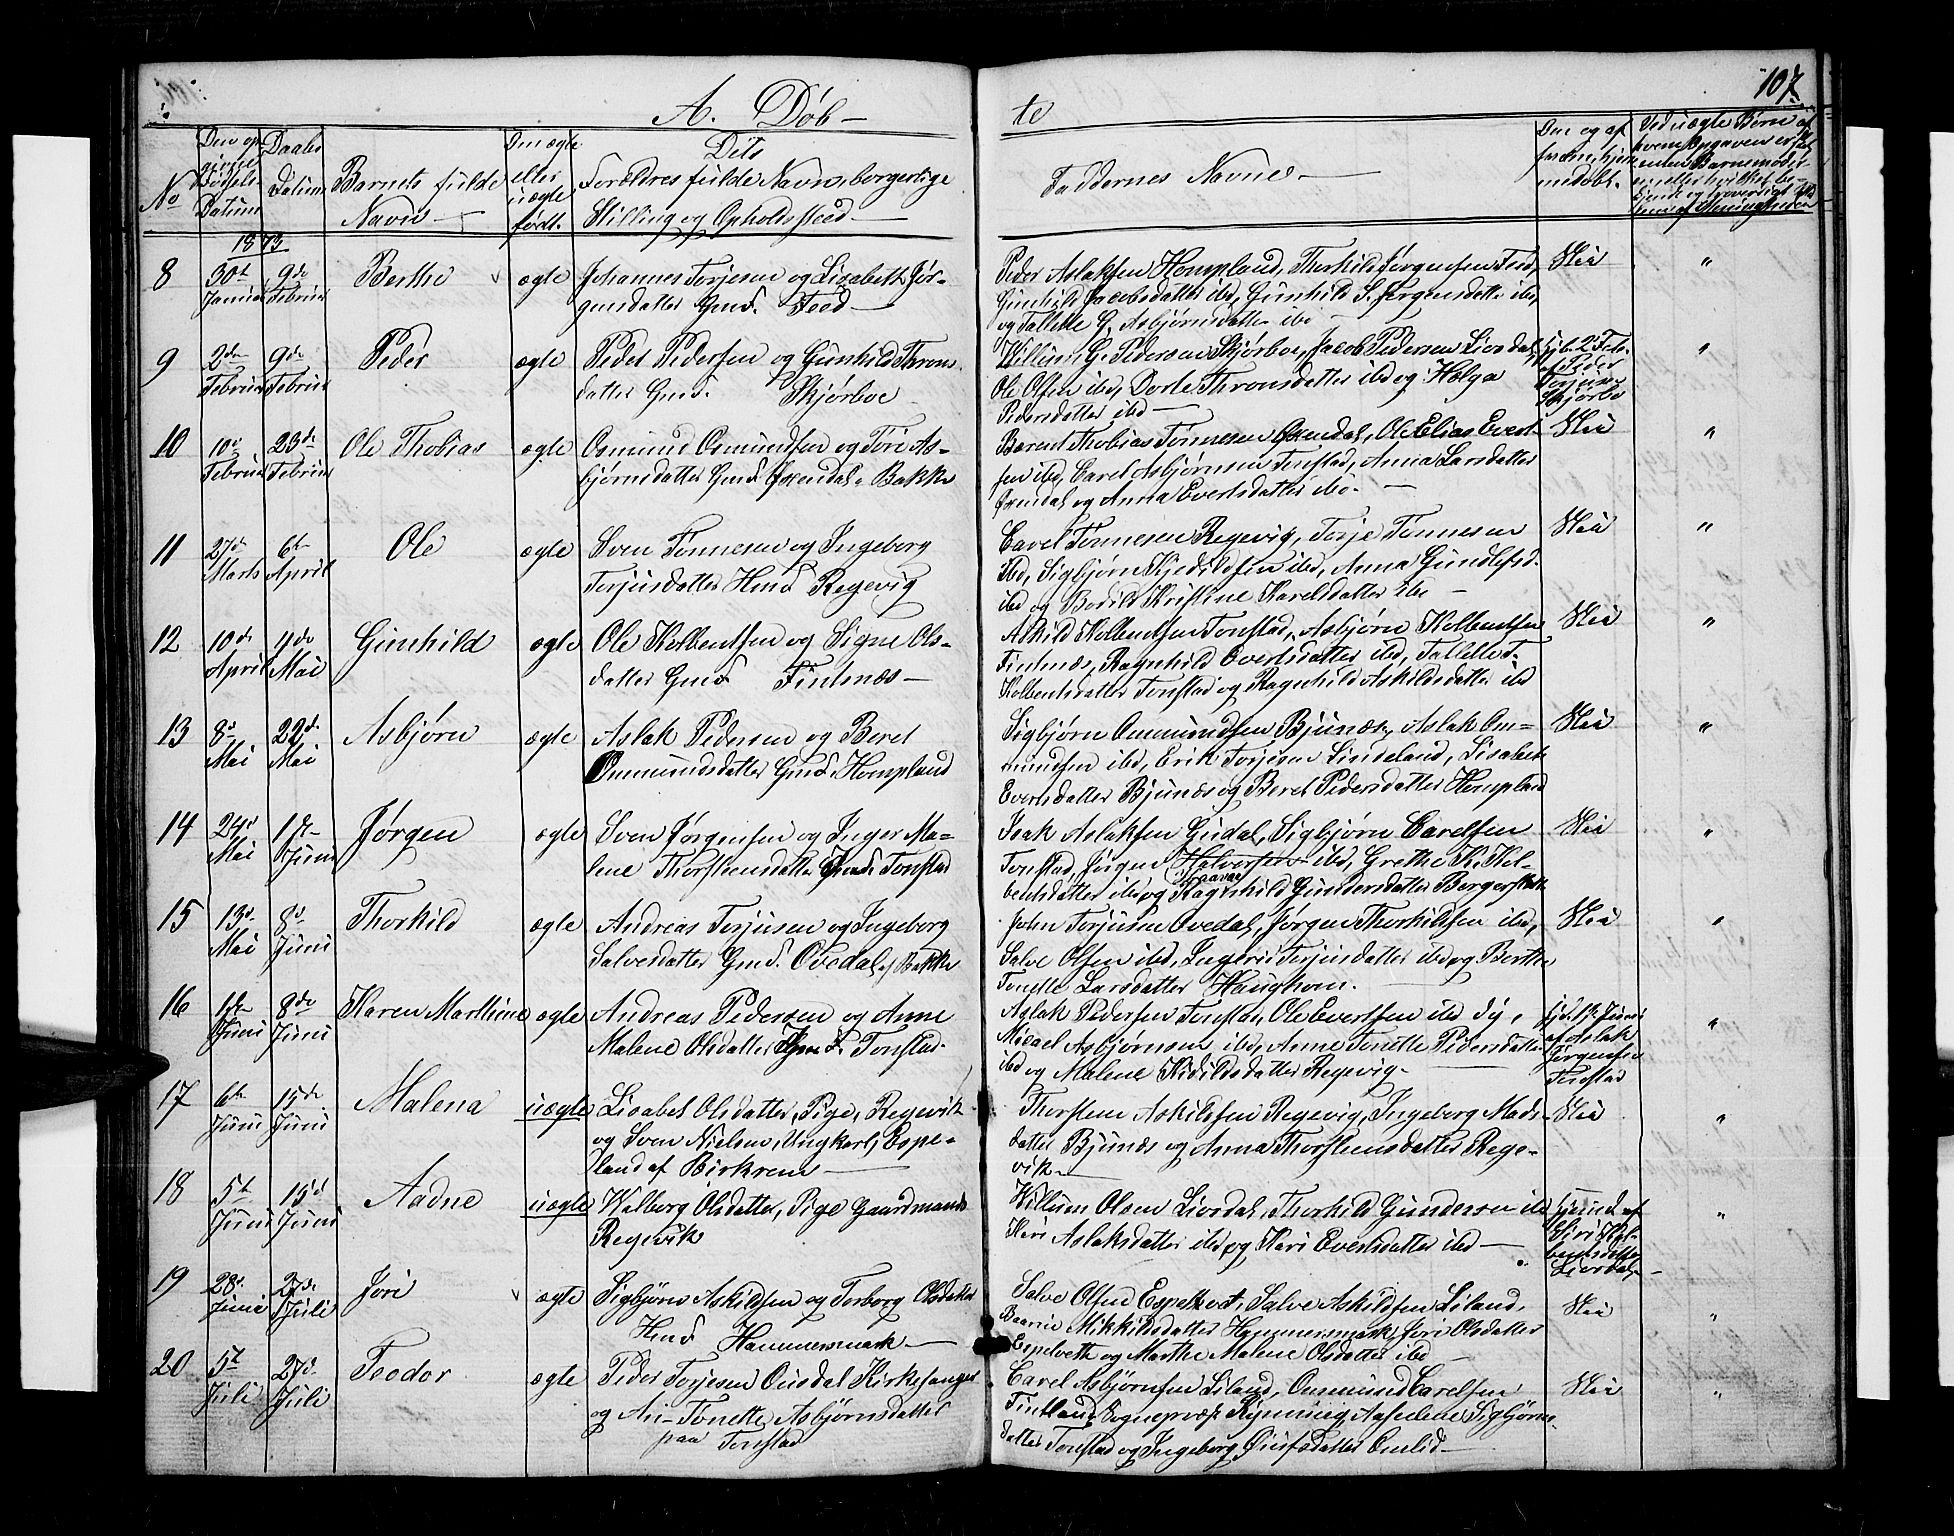 107
A. Døb-
te
No
Den op-
givne
Fødsels-
Datum
Daabs
Datum
Barnets fulde
Navn
Om ægte
eller
uægte
født.
Dets
Forældres fulde Navn, borgerlige
Stilling og Opholdssted
Faddernes Navne
1873
8 30te Januar 9de Februar Berthe ægte
Johannes Torjesen og Lisabeth Jør-
gensdatter Gmd. Feed
Peder Aslaksen Hompland, Thorkild Jørgensen Feed,
Gunhild Jacobsdatter ibd, Gunhild S. Jørgensdatte ibd,
og Tallette G. Asbjørnsdatter ibd
Nei "
9 2den Februar 9de Februar Peder ægte
Peder Pedersen og Gunhild Throns
datter Gmd. Skjørboe
Villum G. Pedersen Skjørboe, Jacob Pedersen Liosdal,
Ole Olsen ibd, Dorte Thronsdatter ibd og Helga
Pedersdatter ibd
hj. d. 2 Feb.
af Peder
Torjusen
Skjørbo
"
10 10d Februar 23de Februar Ole Thobias ægte
Osmund Osmundsen og Tori As-
bjørnsdatter Gmd. Øxendal, Bakke
Berent Thobias Tønnesen Øxendal, Ole Elias Evert-
sen ibd, Carel Asbjørnsen Tonstad, Anna Larsdatter
Øxendal og Anna Evertsdatter ibd.
Nei "
11 27d Marts 6te April Ole ægte
Sven Tønnesen og Ingeborg
Torjusdatter Hmd Regevig
Carel Tønnesen Regevig, Torje Tønnesen
ibd, Sigbjørn Kjedilsen ibd, Anna Gundlefsd.
ibd og Bodild Kristine Karelsdatter ibd
Nei "
12 10de April 11de Mai Gunhild ægte
Ole Kolbentsen og Signe Ols-
datter Gmd. Fintnæs
Askild Kolbentsen Tonstad, Asbjørn Kolbentsen
Fintnæs, Ragnhild Evertsdatter ibd, Tallette T.
Kolbentsdatter Tonstad og Ragnhild Askildsdatter ibd
Nei "
13 8d Mai 22de Mai Asbjørn ægte
Aslak Pedersen og Beret
Ommundsdatter Gmd. Hompland
Sigbjørn Ommundsen Bjunæs, Aslak Om-
mundsen ibd, Erik Torjesen Lindeland, Lisabet
Evertsdatter Bjunæs og Beret Pedersdatter Hompland
Nei "
14 24d Mai 1ste Juni Jørgen ægte
Sven Jørgensen og Inger Ma-
lene Thorsteensdatter Gmd. Tonstad
Isak Aslaksen Gudal, Sigbjørn Carelsen
Tonstad, Jørgen Halvorsen ibd, Grethe K. Kol-
bentsdatter ibd og Ragnhild Gundersdatter
Nei "
15 13d Mai 8d Juni Thorkild ægte
Andreas Torjusen og Ingeborg
Salvesdatter Gmd. Ovedal af Bakke
John Torjusen Ovedal, Jørgen Thorkildsen ibd,
Salve Olsen ibd, Ingeri Torjusdatter ibd og Berthe
Tonette Larsdatter Haughom.
Nei "
16 1ste Juni 8de Juni Karen Marthine ægte
Andreas Pedersen og Anne
Malene Olsdatter Gmd. Tonstad
Aslak Pedersen Tonstad, Ole Evertsen ibd
Micael Asbjørnsen ibd, Anne Tonette Pedersdatter
ibd og Malene Kidildsdatter Regevig
hjd. 1ste Juni
af Aslak
Jørgensen
Tonstad
"
17 6te Juni 15de Juni Malena uægte
Lisabet Olsdatter, Pige, Regevik
og Sven Nielsen, Ungkarl, Espe-
land af Birkrem
Thorsteen Askildsen Regevig, Ingeborg Mads-
datter Bjunæs og Anna Thorsteensdatter Rege-
vik
Nei "
18 5te Juni 15d Juni Aadne uægte
Walborg Olsdatter, Pige Gaardmands
Regevik
Villum Olsen Liosdal, Thorkild Gundersen ibd
Kari Aslaksdatter ibd og Kari Evertsdatter ibd
hjemd. af
Siri Kol-
bentsdatter
Liosdal
"
19 28d. Juni 27d. Juli Jori ægte
Sigbjørn Askildsen og Torborg Olsdatter
Hmd Hammersmark
Salve Olsen Espetvet, Salve Askildsen Liland,
Mikkildsdatter Hammersmark, Jori Olsdatter
Espetvedt og Marthe Malene Olsdatter ibd
Nei "
20 5te Juli 27d. Juli Teodor ægte
Peder Torjesen Ousdal Kirkesanger
og An- Tonette Asbjørnsdatter
paa Tonstad
Carel Asbjørnsen Liland, Ommund Carelsen
Fintland, Sogneprest Rynning, Sigbjørns-
datter Tonstad og Ingeborg datter Omlid
Nei "